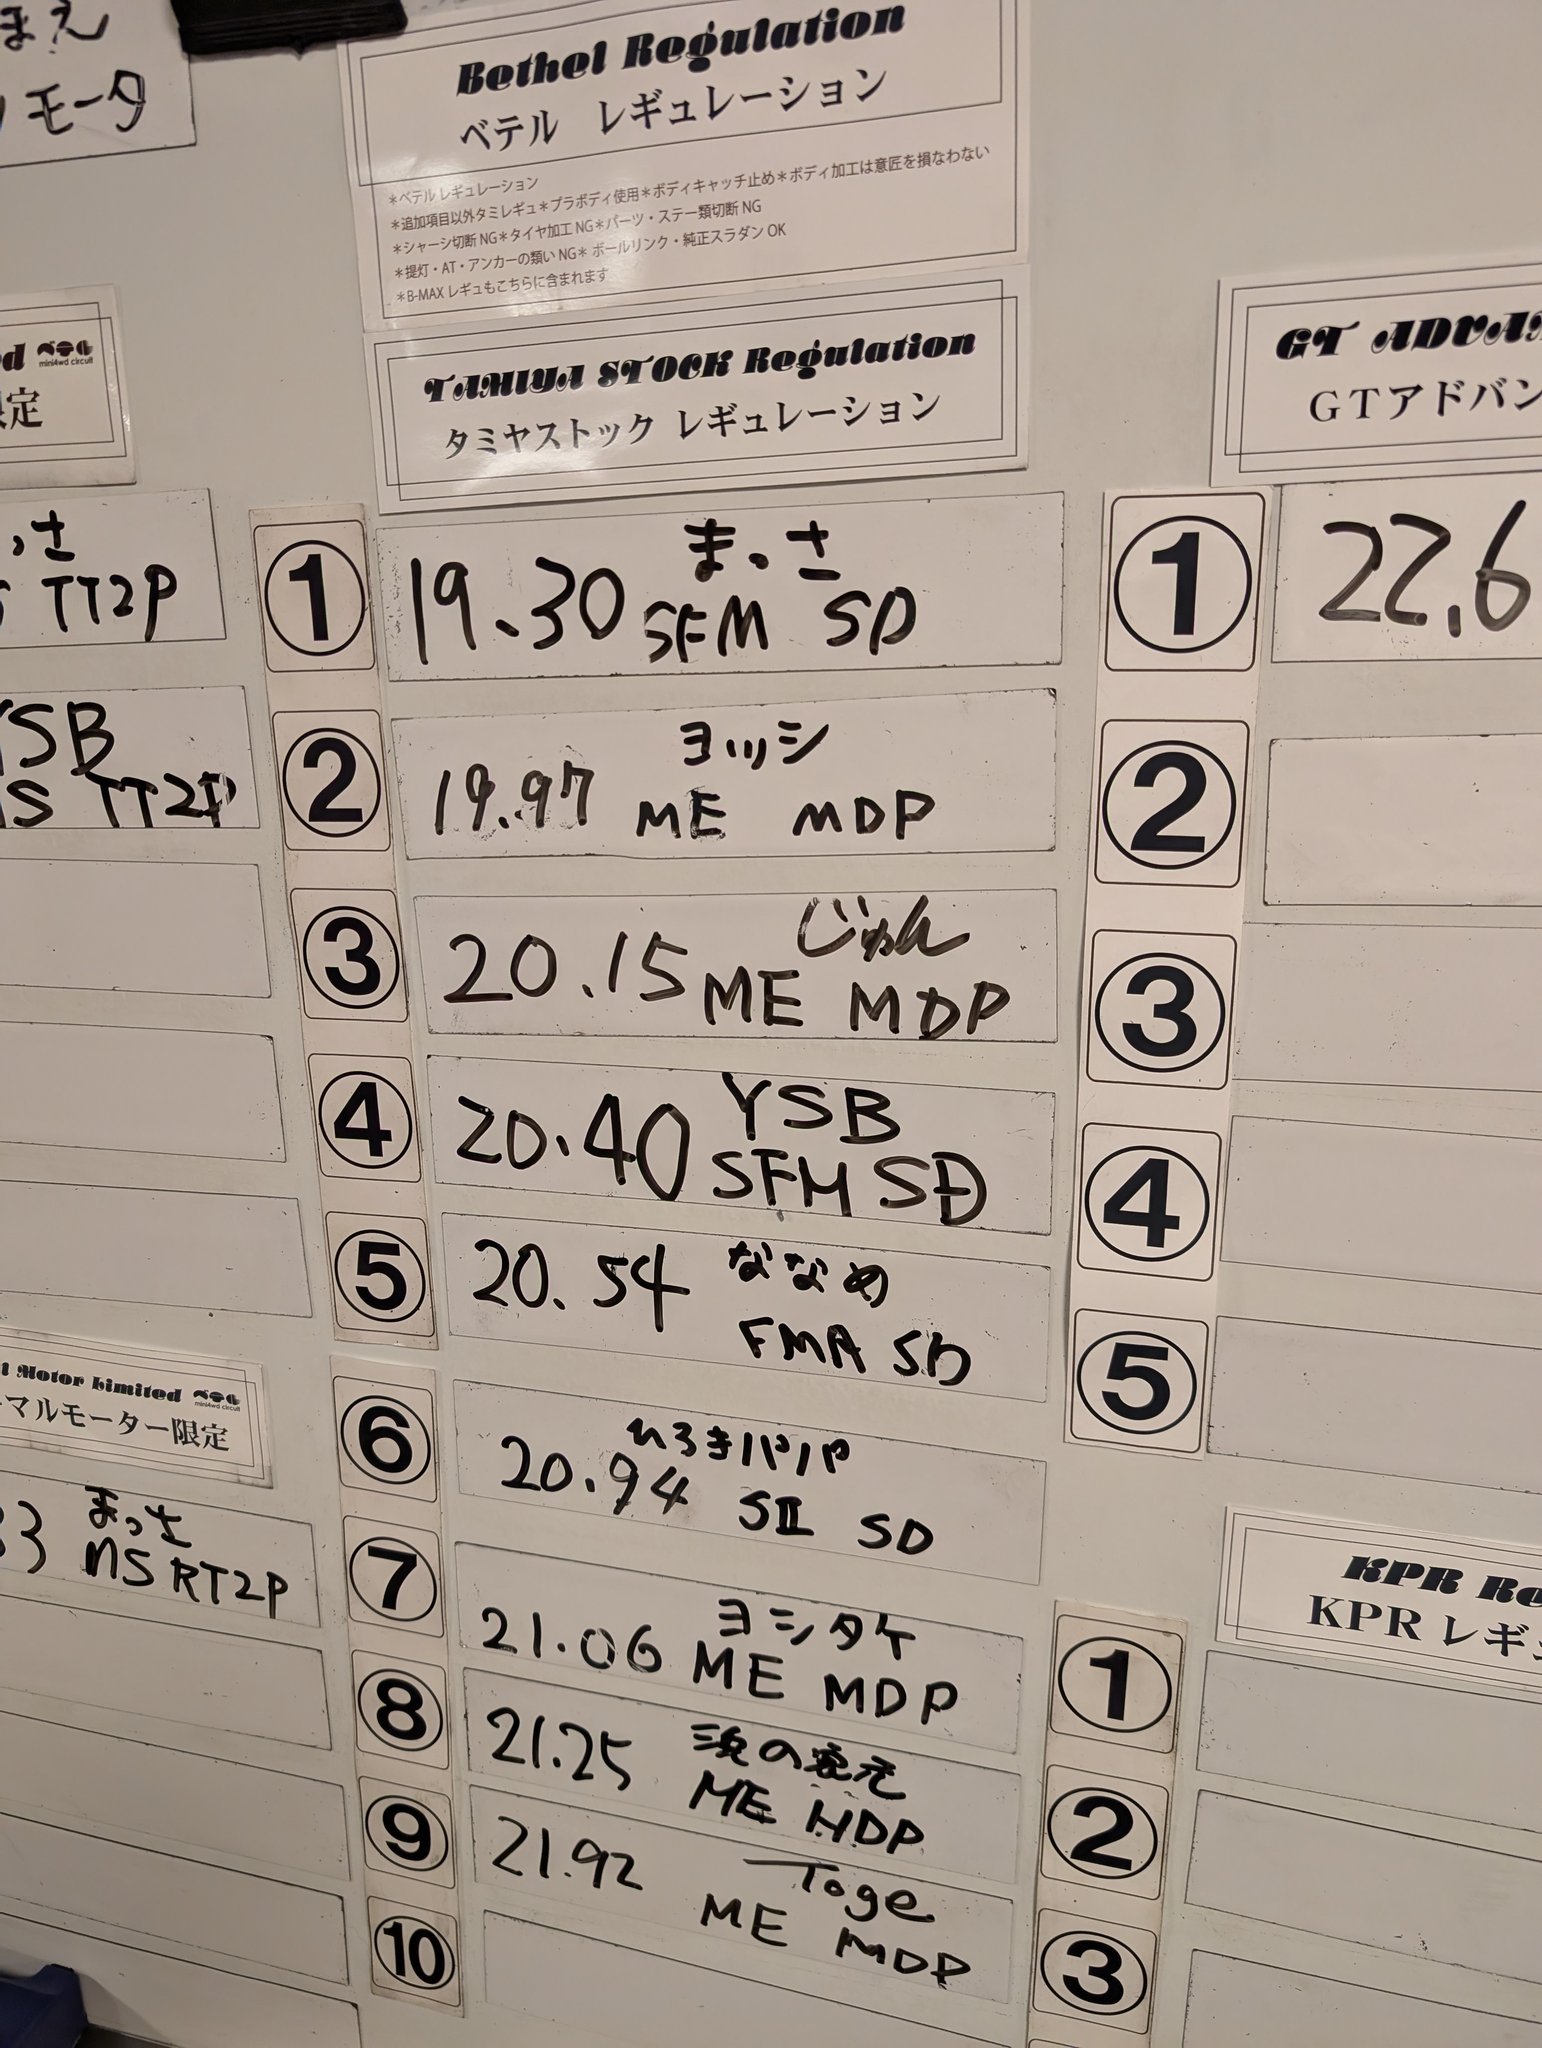 まえ
モータ
Bethel Regulation
ベテル レギュレーション
＊ベテル レギュレーション
＊追加項目以外タミレギュ＊プラボディ使用＊ボディキャッチ止め＊ボディ加工は意匠を損なわない
＊シャーシ切断 NG＊タイヤ加工 NG＊パーツ・ステー類切断 NG
＊提灯・AT・アンカーの類い NG＊ ボールリンク・純正スラダン OK
＊B-MAX レギュもこちらに含まれます
TAMIYA STOCK Regulation
タミヤストック レギュレーション
① 19.30 まっさ
SFM SD
② 19.97 ヨッシ
ME MDP
③ 20.15 じゅん
ME MDP
④ 20.40 YSB
SFM SD
⑤ 20.54 ななめ
FMA SD
⑥ 20.94 ひろきパパ
SII SD
⑦ 21.06 ヨシタケ
ME MDP
⑧ 21.25
ME MDP
⑨ 21.92 Toge
ME MDP
⑩
ベテル
mini4wd circuit
限定
っさ
TT2P
YSB
S TT2P
Motor Limited ベテル
mini4wd circuit
マルモーター限定
33 まっさ
MS RT2P
GT ADVA
GTアドバン
① 22.6
②
③
④
⑤
KPR Re
KPR レギ
①
②
③